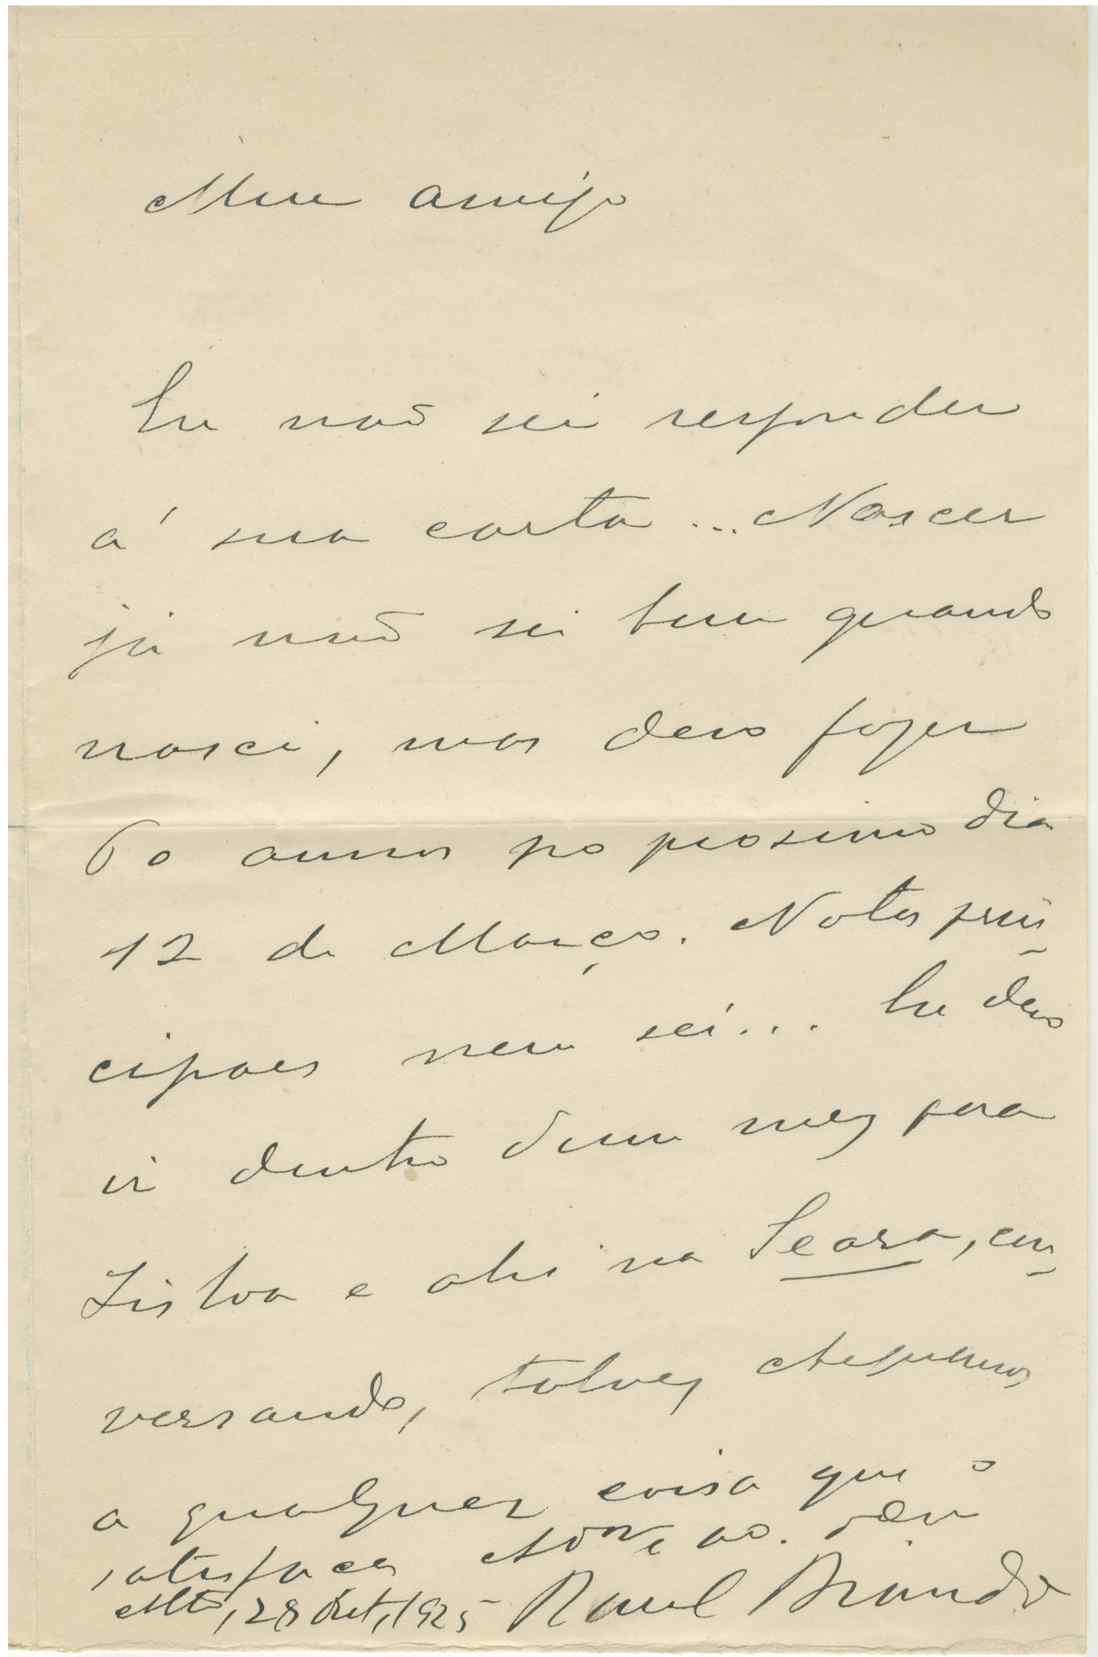 Meu amigo
Eu não sei responder
á sua carta ... Nascer
já não sei bem quando
nasci, mas devo fazer
60 annos no proximo dia
12 de Março. Notas prin-
cipaes nem sei... Eu devo
ir dentro dum mez para
Lisboa e ahi na Seara, con-
versando, talvez cheguemos
a qualquer coisa que o
satisfaça
28 Out, 1925 Raul Brandão